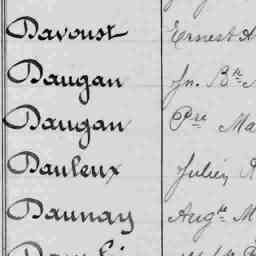 Davoust Ernest A
Daugan Jn. Bte
Daugan Pre Ma
Dauleux Julien
Daunay Augte M